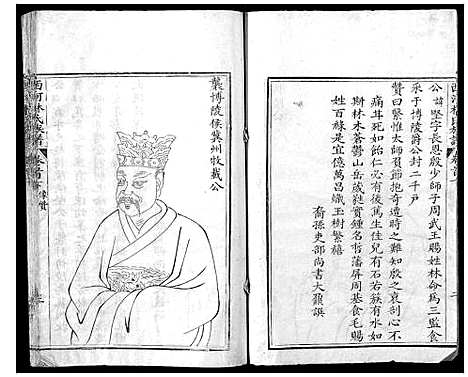 公諱堅字長恩殷少師子周武王賜姓林命為三監食
采于博陵爵公封二千戶
贊曰繄惟太師負節抱奇遭時之難知殷之衰剖心不
痛甘死如飴仁必有後篤生佳兒有石若簇有水如
斯林木蒼鬱山岳歲鞋實鍾名哲藩屏周基食毛賜
姓百緣是宜億萬昌熾玉樹繁禧
裔孫吏部尚書大鼐譔
襲博陵侯冀州牧載公
西河林氏族譜 卷首
像贊